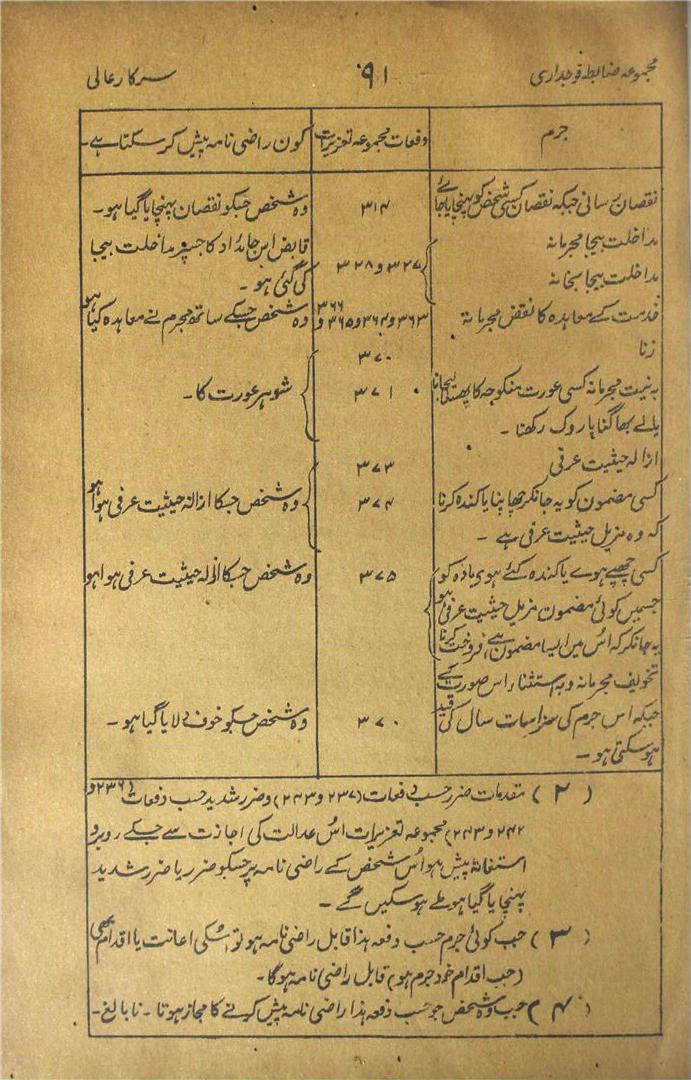 مجموعہ ضابطہ فوجداری ۹۱ سرکار عالی
جرم دفعات مجموعہ تعزیرات کون راضی نامہ پیش کر سکتا ہے۔
نقصان رسانی جبکہ نقصان کسی شخص کو پہنچایا جائے ۳۱۴ وہ شخص جسکو نقصان پہنچایا گیا ہو۔
مداخلت بیجا مجرمانہ ۳۲۷ و ۳۲۸ قابض اس جائداد کا جسپر مداخلت بیجا
مداخلت بیجا بخانہ کی گئی ہو۔
خدمت کے معاہدہ کا نقض مجرمانہ ۳۶۳ و ۳۶۴ و ۳۶۵ و ۳۶۶ وہ شخص جسکے ساتھ مجرم نے معاہدہ کیا ہو
زنا ۳۷۰
بہ نیت مجرمانہ کسی عورت منکوحہ کا پھسلا لیجانا ۳۷۱ شوہر عورت کا۔
یا لے بھاگنا یا روک رکھنا۔
ازالہ حیثیت عرفی ۳۷۳
کسی مضمون کو یہ جانکر چھاپنا یا کندہ کرنا ۳۷۴ وہ شخص جسکا ازالہ حیثیت عرفی ہوا ہو
کہ وہ مزیل حیثیت عرفی ہے۔
کسی چھپے ہوے یا کندہ کئے ہوی مادہ کو ۳۷۵ وہ شخص جسکا ازالہ حیثیت عرفی ہوا ہو
جسمیں کوئی مضمون مزیل حیثیت عرفی ہو
یہ جانکر کہ اُس میں ایسا مضمون ہے، فروخت کرنا
تخویف مجرمانہ و بہ استثناء اس صورت کے
جبکہ اس جرم کی سزا سات سال کی قید ۳۷۰ وہ شخص جسکو خوف دلایا گیا ہو۔
ہو سکتی ہو۔
(۲) مقدمات ضرر حسب دفعات (۲۳۷ و ۲۴۳) و ضرر شدید حسب دفعات (۲۳۶ و
۲۴۲ و ۲۴۳) مجموعہ تعزیرات اُس عدالت کی اجازت سے جسکے روبرو
استغاثہ پیش ہو اُس شخص کے راضی نامہ پر جسکو ضرر یا ضرر شدید
پہنچایا گیا ہو طے ہو سکیں گے۔
(۳) جب کوئی جرم حسب دفعہ ہذا قابل راضی نامہ ہو تو اُسکی اعانت یا اقدام بھی
(جب اقدام خود جرم ہو) قابل راضی نامہ ہوگا۔
(۴) جب وہ شخص جو حسب دفعہ ہذا راضی نامہ پیش کرنے کا مجاز ہوتا۔ نابالغ۔